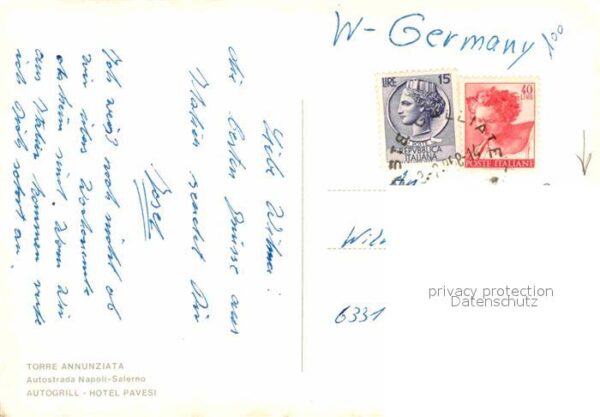 W-Germany
LIRE 15
REPUBBLICA
ITALIANA
40
LIRE
POSTE ITALIANE
An
6331
privacy protection
Datenschutz
Liebe Wilma!
die besten Grüsse aus
Italien sendet Dir
Josef
Ich weiß noch nicht ob
wir übers Wochenende
daheim sind. Wenn wir
aus Italien kommen rufe
ich Dich sofort an.
TORRE ANNUNZIATA
Autostrada Napoli-Salerno
AUTOGRILL - HOTEL PAVESI